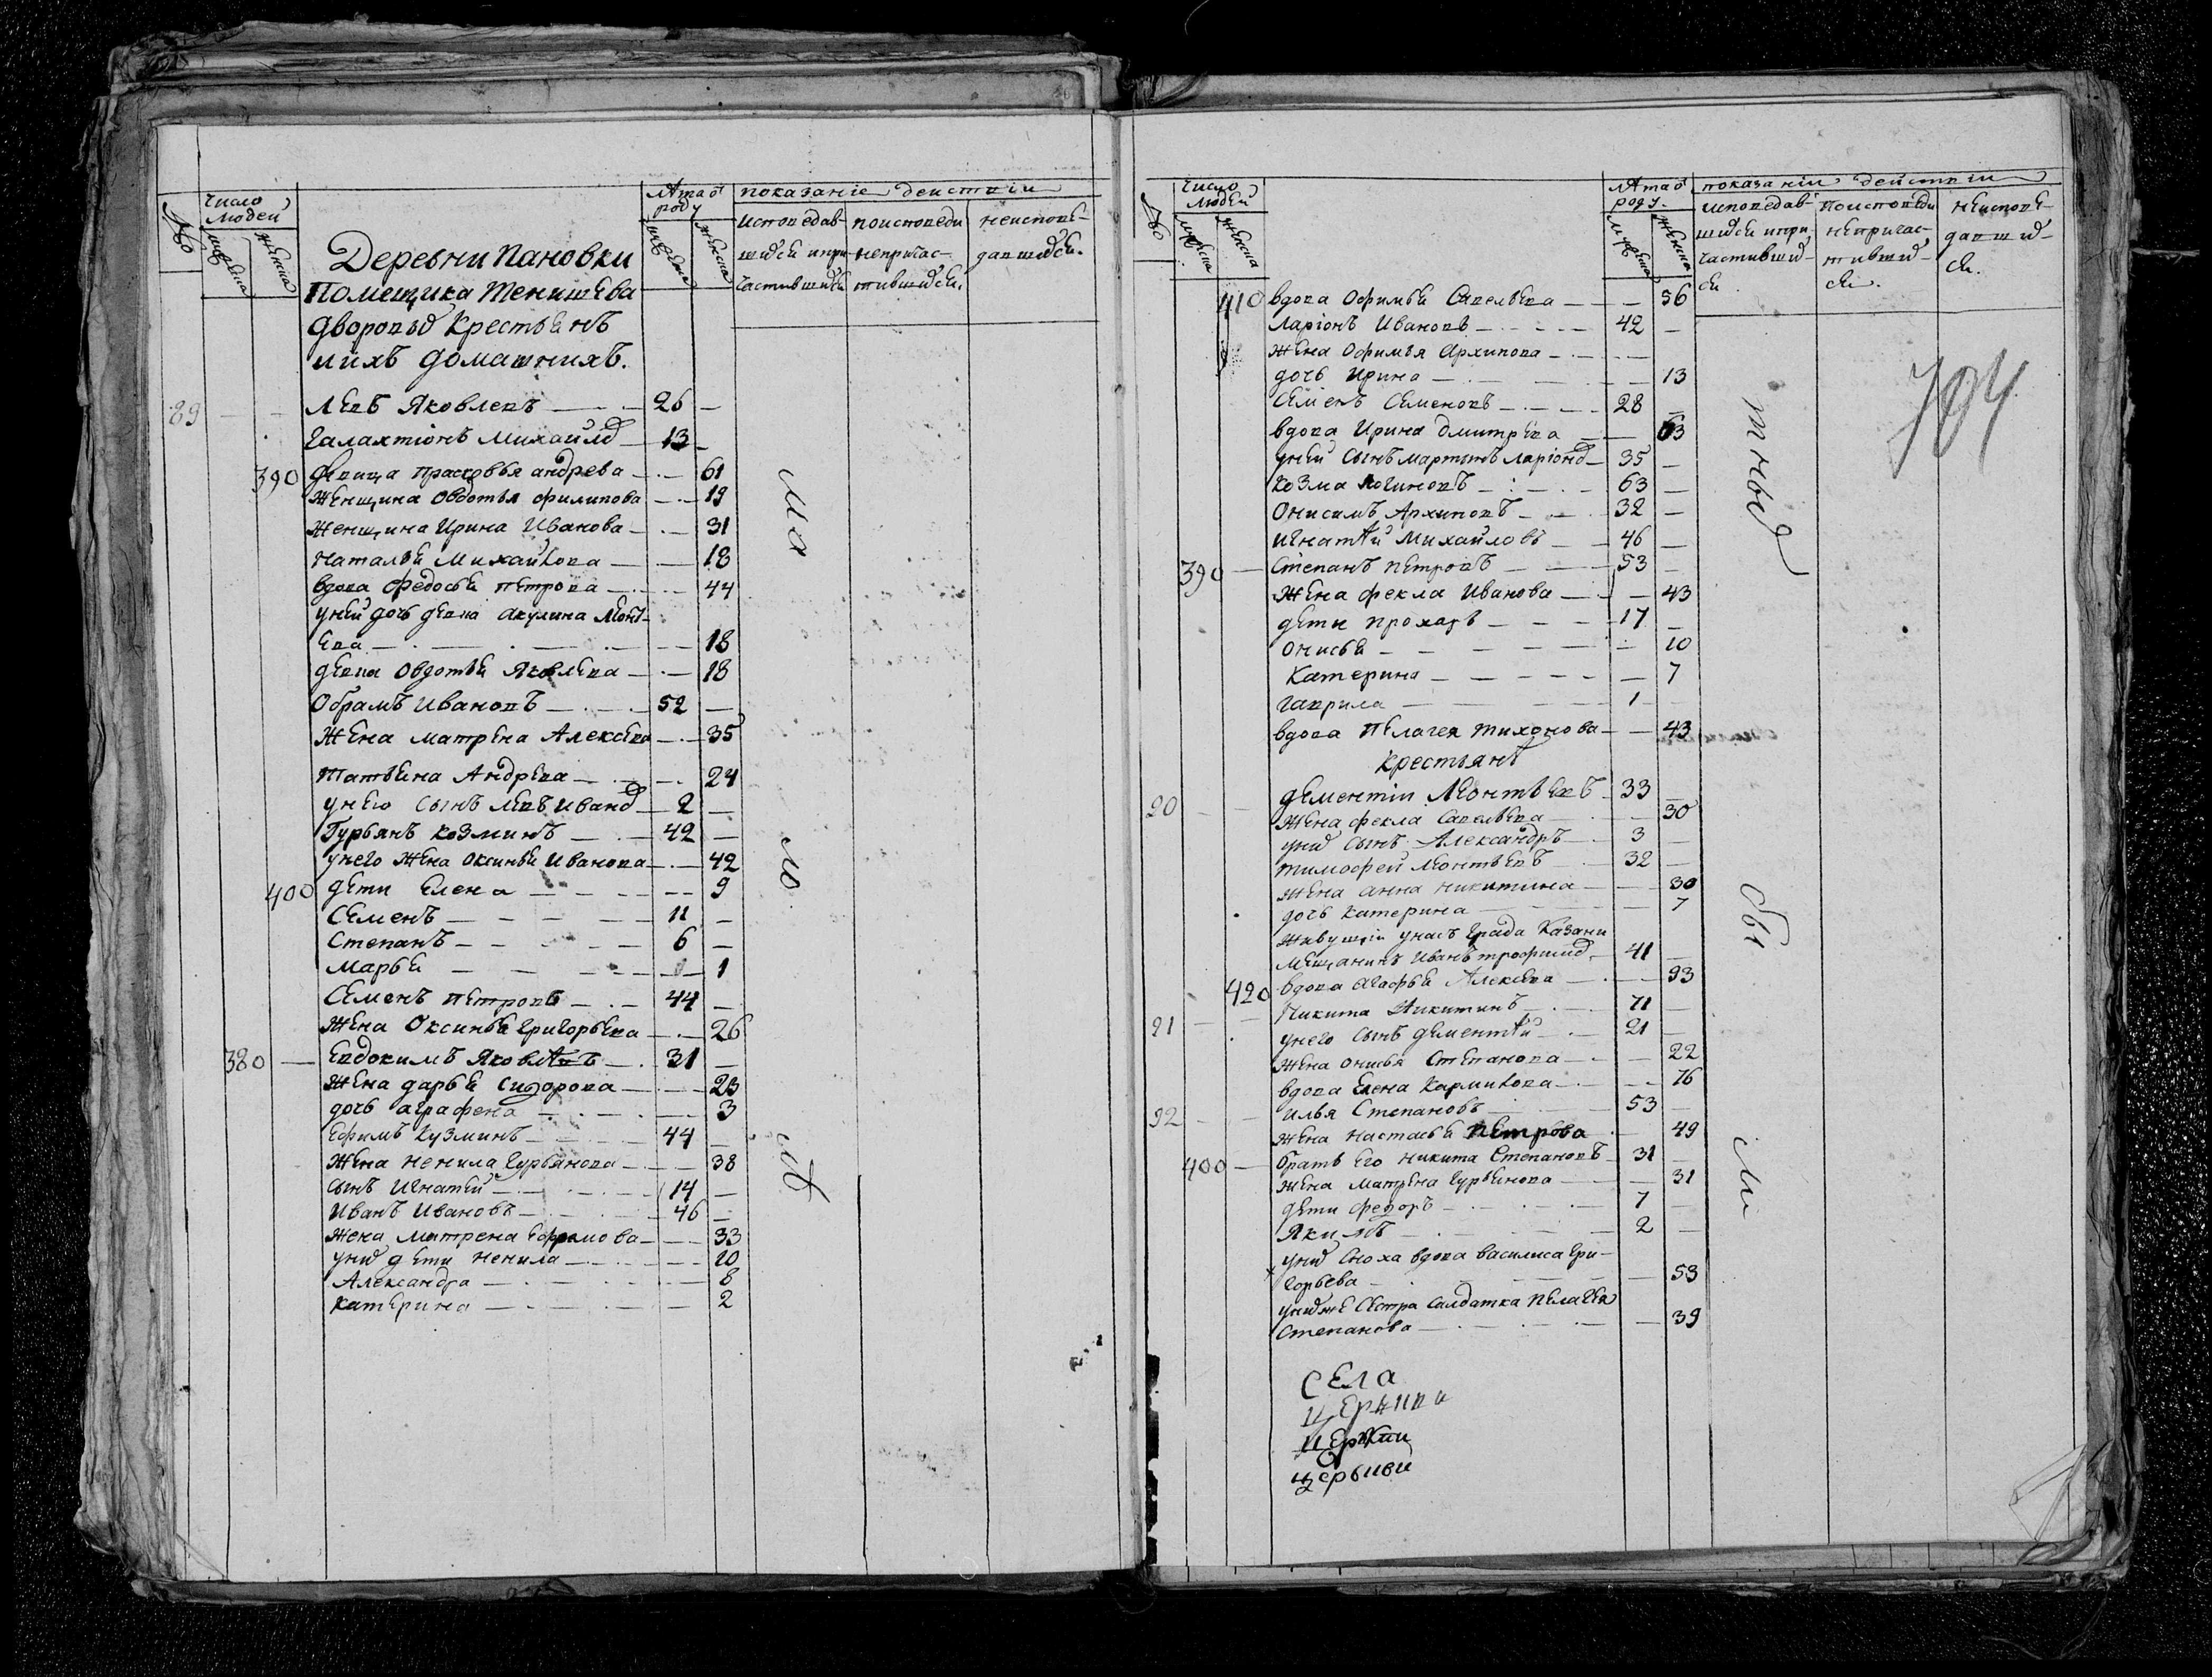 No
число людей
мужеска
женска
лѣта от роду
мужеска
женска
показание деистви
исповедав-
шихся и при-
частившихся
по исповеди
не причас-
тившихся
неисповѣ-
давшихся.
Деревни Пановки
Помещика Тенишева
дворовых крестьянъ
и ихъ домашнихъ.
89 — — Левъ Яковлевъ — 26 —
Галахтионъ Михаилов — 13 —
390 девица Прасковья Андрева — 61
Женщина Овдотья Филипова — 19
Женщина Ирина Иванова — 31
Наталья Михаилова — 18
вдова Федосья Петрова — 44
у ней дочь девка Акулина Леонт-
ева — 18
девка Овдотья Яковлева — 18
Обрамъ Ивановъ — 52 —
Жена Матрена Алексева — 35
Татьяна Андрева — 24
у нею сынъ Левъ Иванов — 2 —
Гурьянъ Козминъ — 42 —
у него жена Оксинья Иванова — 42
400 дети Елена — 9
Семенъ — 11 —
Степанъ — 6 —
Марья — 1
Семенъ Петровъ — 44 —
Жена Оксинья Григорьева — 26
380 — Евдокимъ Яковлѣвъ — 31 —
Жена Дарья Сидорова — 23
дочь Аграфена — 3
Ефимъ Кузминъ — 44 —
Жена Ненила Гурьянова — 38
сынъ Игнатей — 14 —
Иванъ Ивановъ — 46 —
Жена Матрена Ефремова — 33
у них дети Ненила — 10
Александра — 8
Катерина — 2
ма
ло
лѣ
No
число людей
мужеска
женска
лѣта от роду.
мужеска
женска
показании действи
исповедав-
шихся и при
частивших-
ся
по исповеди
непричас-
тивших-
ся.
неисповѣ-
давших-
ся.
704
410 вдова Офимья Савельева — 56
Ларионъ Ивановъ — 42 —
Жена Офимья Архипова —
дочь Ирина — 13
Семенъ Семеновъ — 28 —
вдова Ирина Дмитрева — 63
у ней сынъ Мартынъ Ларионов — 35 —
Козма Логиновъ — 63 —
Онисимъ Архиповъ — 32 —
Игнатѣй Михайловъ — 46 —
390 — Степанъ Петровъ — 53 —
Жена Фекла Иванова — 43
дети Прохаръ — 17 —
Онисья — 10
Катерина — 7
Гаврила — 1
вдова Пелагея Тихонова — 43
крестьянѣ
90 — Дементии Леонтьевъ 33 —
Жена Фекла Савельева — 30
у них сынъ Александръ — 3 —
Тимофей Леонтьевъ — 32 —
Жена Анна Никитина — 30
дочь Катерина — 7
Живущии у насъ града Казани
мещанинъ Иванъ Трофимов — 41 —
420 вдова Агафья Алексева — 93
91 — — Никита Никитинъ — 71 —
у него сынъ Дементѣй — 21 —
Жена Онисья Степанова — 22
вдова Елена Кармилова — 76
92 — — Илья Степановъ — 53 —
Жена Настасья Петрова — 49
400 — братъ его Никита Степановъ — 31 —
Жена Матрена Гурьянова — 31
дети Федоръ — 7 —
Якимъ — 2 —
у них сноха вдова Василиса Гри-
горьева — 53
у них же сестра салдатка Пелагея
Степанова — 39
тных
бы
ли
села
церкви
церкви